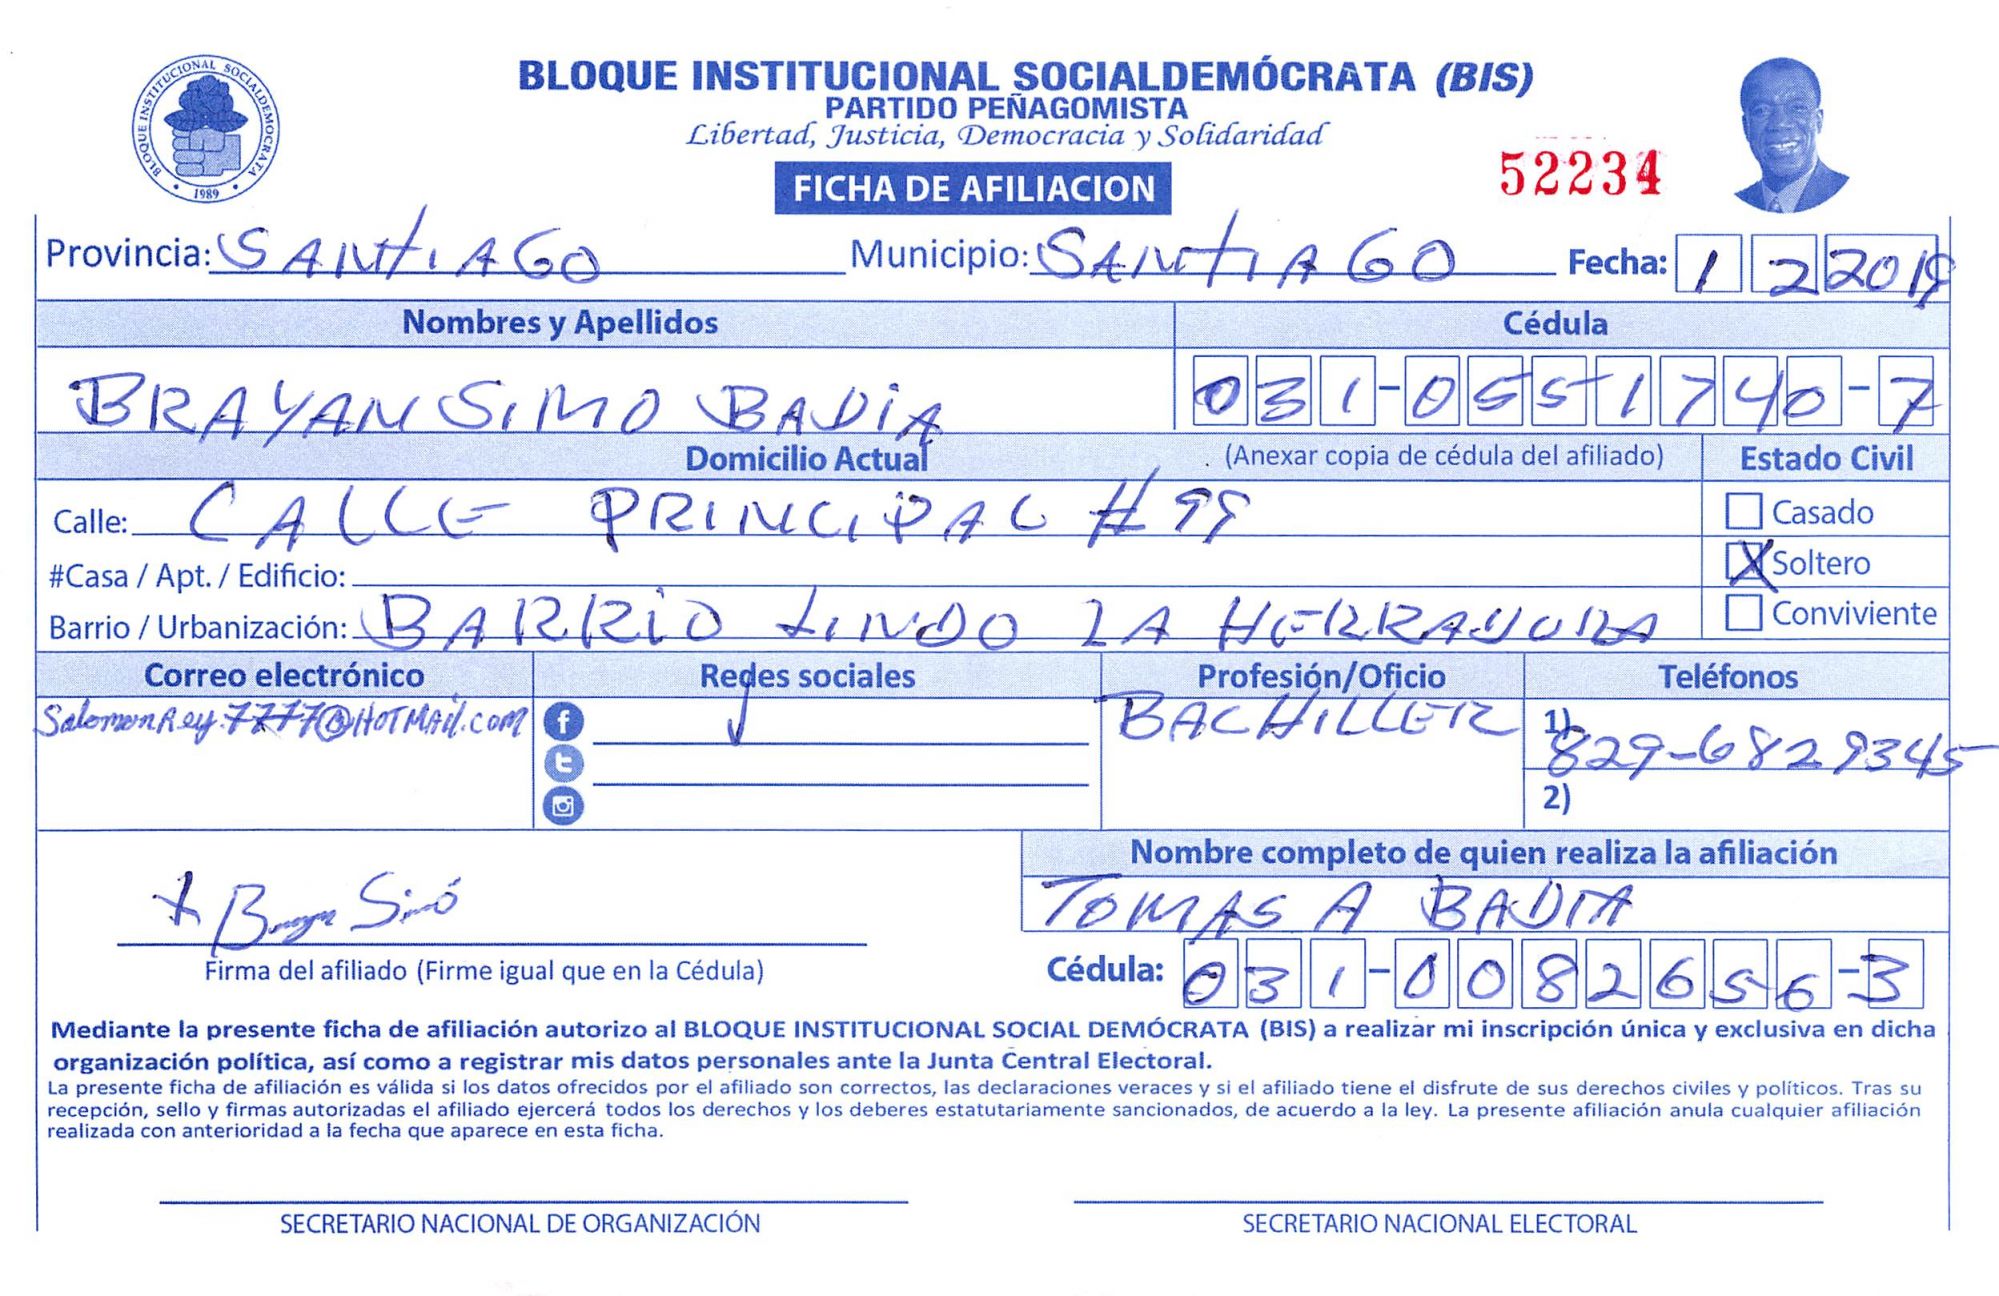 BLOQUE INSTITUCIONAL SOCIALDEMOCRATA
1989
BLOQUE INSTITUCIONAL SOCIALDEMÓCRATA (BIS)
PARTIDO PEÑAGOMISTA
Libertad, Justicia, Democracia y Solidaridad
FICHA DE AFILIACION
52234
Provincia: SANTIAGO Municipio: SANTIAGO Fecha: 1 2 2019
Nombres y Apellidos Cédula
BRAYAN SIMO BADIA 031-0551740-7
Domicilio Actual (Anexar copia de cédula del afiliado) Estado Civil
Calle: CALLE PRINCIPAL #99 Casado
#Casa / Apt. / Edificio: X Soltero
Barrio / Urbanización: BARRIO LINDO LA HERRADURA Conviviente
Correo electrónico Redes sociales Profesión/Oficio Teléfonos
SalomonRey.7777@HOTMAil.com BACHILLER 1) 829-6829345
2)
Nombre completo de quien realiza la afiliación
X Brayan Simó TOMAS A BADIA
Firma del afiliado (Firme igual que en la Cédula) Cédula: 031-0082656-3
Mediante la presente ficha de afiliación autorizo al BLOQUE INSTITUCIONAL SOCIAL DEMÓCRATA (BIS) a realizar mi inscripción única y exclusiva en dicha
organización política, así como a registrar mis datos personales ante la Junta Central Electoral.
La presente ficha de afiliación es válida si los datos ofrecidos por el afiliado son correctos, las declaraciones veraces y si el afiliado tiene el disfrute de sus derechos civiles y políticos. Tras su
recepción, sello y firmas autorizadas el afiliado ejercerá todos los derechos y los deberes estatutariamente sancionados, de acuerdo a la ley. La presente afiliación anula cualquier afiliación
realizada con anterioridad a la fecha que aparece en esta ficha.
SECRETARIO NACIONAL DE ORGANIZACIÓN SECRETARIO NACIONAL ELECTORAL